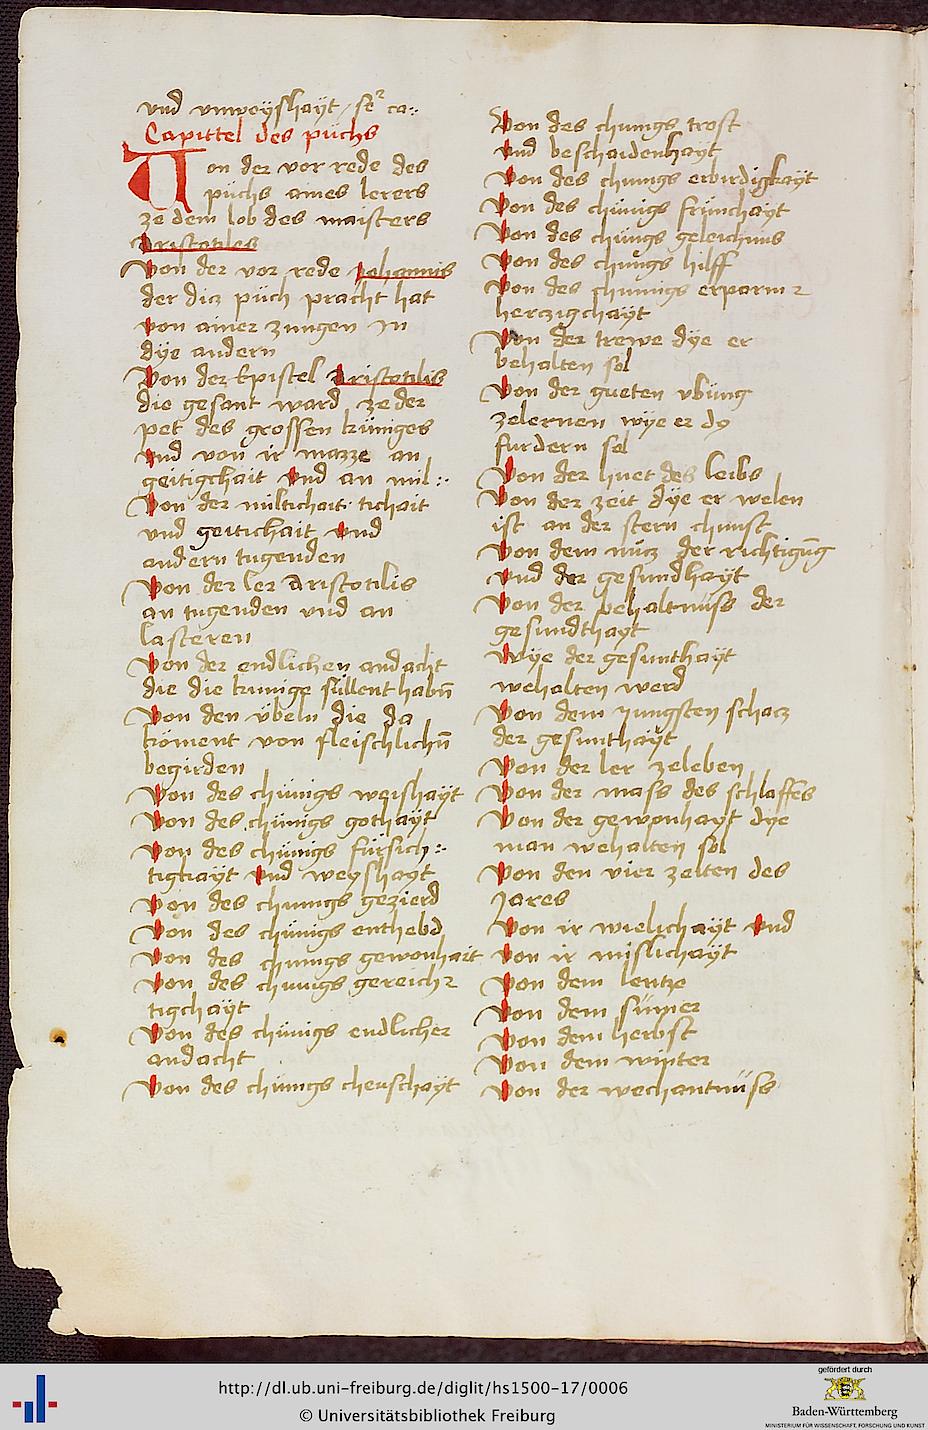 vnd vnweyshayt
Capittel des puchs
Von der vor rede des
puchs aines lerers
ze dem lob des maisters
Aristotiles
Von der vor rede Johannis
der dicz püch pracht hat
von ainer zungen in
dÿe andern
Von der Epistel Aristotilis
die gesant ward ze der
pet des grossen küniges
vnd von ir mazze an
geitigchait vnd an mil
Von der miltichait tichait
vnd geitichait vnd
andern tugenden
Von der ler Aristotilis
an tugenden vnd an
lasteren
Von der endlichen andacht
die die kunige süllent habn̄
Von den übeln die da
köment von fleischlichn̄
begirden
Von des chünigs weishaÿt
Von des chünigs gothaÿt
Von des chünigs fürsich
tigkaÿt vnd weyshayt
Von des chunigs gezierd
Von des chünigs enthebd
Von des chunigs gewonhait
Von des chunigs gereich
tigchaÿt
Von des chünigs endlicher
andacht
Von des chünigs cheuschaÿt
Von des chunigs trost
vnd beschaidenhaÿt
Von des chunigs erbirdigkaÿt
Von des chünigs frünchaÿt
Von des chüngs geleichnus
Von des chüngs hilff
Von des chunigs erparm
herczigchaÿt
Von der trewe dÿe er
behalten sol
Von der gueten vbüng
zelernen wÿe er dy
furdern sol
Von der huet des leibs
Von der zeit dÿe er welen
ist an der stern chunst
Von dem nucz der richtigūg
vnd der gesundhaÿt
Von der behaltnüss der
gesundthayt
Wÿe der gesunthaÿt
wehalten werd
Von dem Jungsten schacz
der gesunthaÿt
Von der ler zeleben
Von der mass des schlaffes
Von der gewonhayt dye
man wehalten sol
Von den vier zeiten des
Jares
Von ir wielichaÿt vnd
Von ir mislichaÿt
Von dem lentze
Von dem sumer
Von dem herbst
Von dem winter
Von der wechantnüss
http://dl.ub.uni-freiburg.de/diglit/hs1500-17/0006
© Universitätsbibliothek Freiburg
gefördert durch
Baden-Württemberg
MINISTERIUM FÜR WISSENSCHAFT, FORSCHUNG UND KUNST